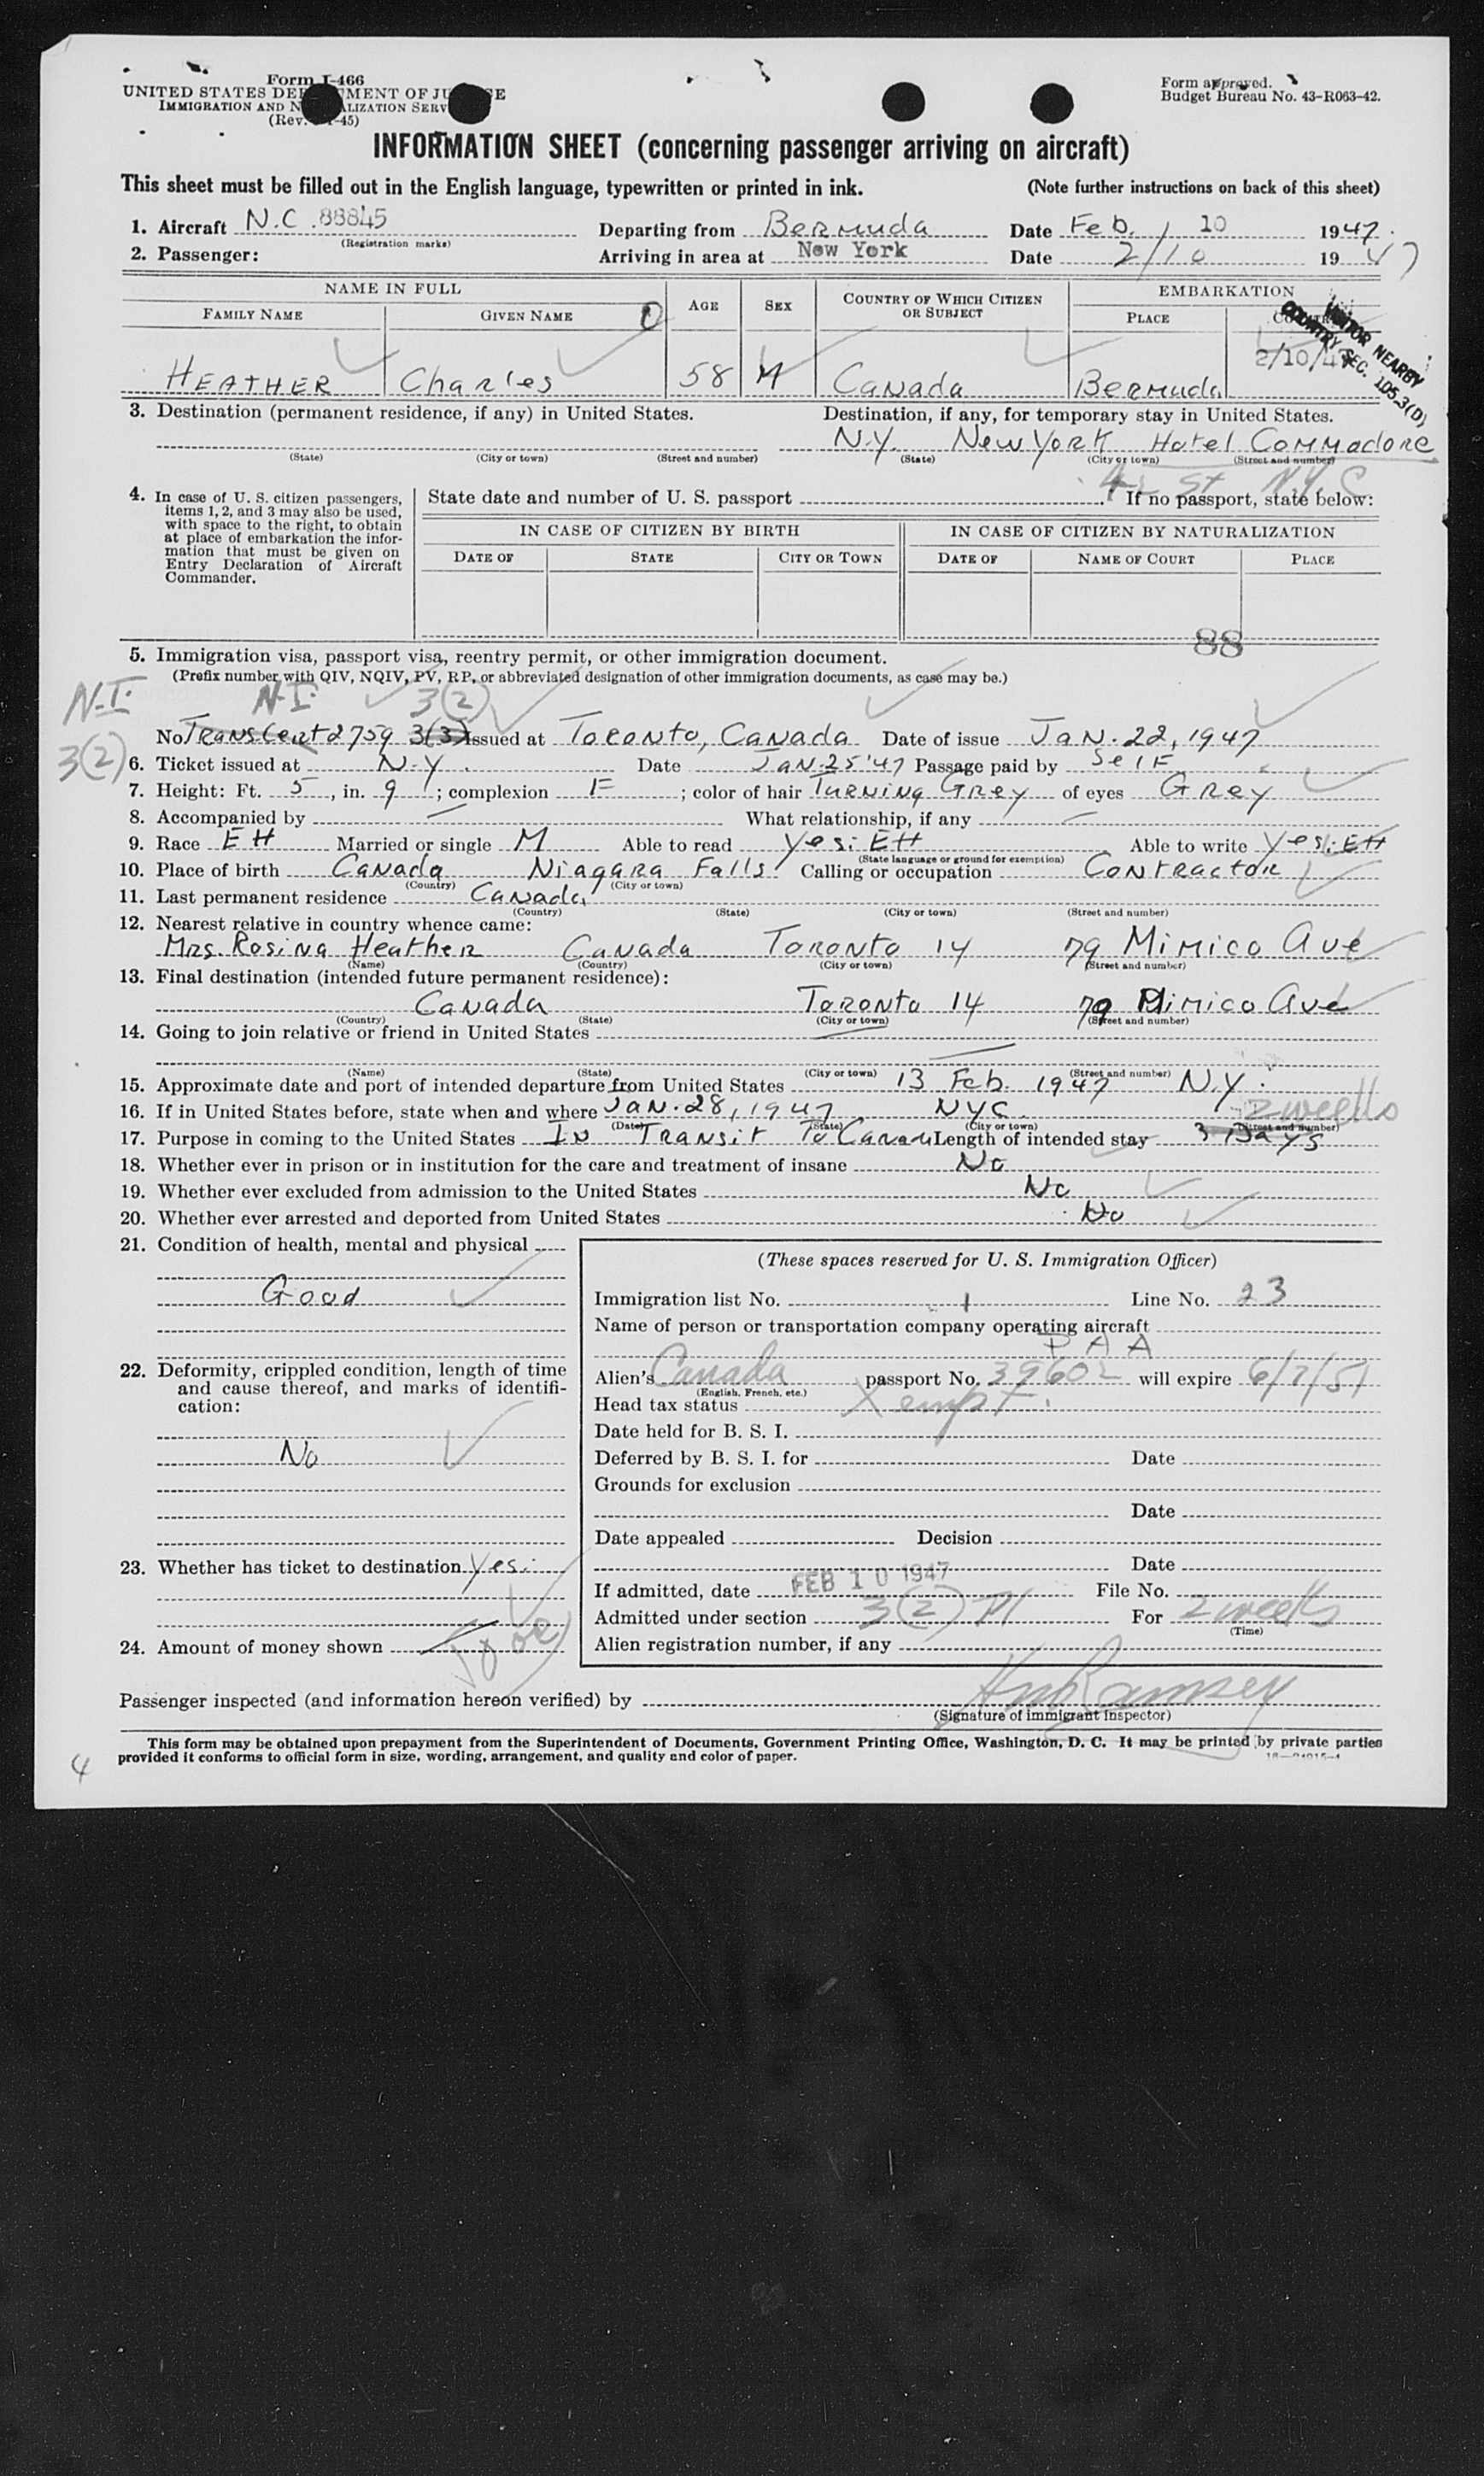 Form I-466
UNITED STATES DEPARTMENT OF JUSTICE
IMMIGRATION AND NATURALIZATION SERVICE
(Rev. -45)
Form approved.
Budget Bureau No. 43-R063-42.
INFORMATION SHEET (concerning passenger arriving on aircraft)
This sheet must be filled out in the English language, typewritten or printed in ink. (Note further instructions on back of this sheet)
1. Aircraft N.C. 88845 Departing from Bermuda Date Feb. 10 1947.
(Registration marks)
2. Passenger: Arriving in area at New York Date 2/10 1947
NAME IN FULL AGE SEX COUNTRY OF WHICH CITIZEN OR SUBJECT EMBARKATION
FAMILY NAME GIVEN NAME PLACE
VISITOR NEARBY
COUNTRY SEC. 105.3(D)
2/10/47
HEATHER Charles 58 M Canada Bermuda
3. Destination (permanent residence, if any) in United States. Destination, if any, for temporary stay in United States.
N.Y. New York Hotel Commadore
(State) (City or town) (Street and number) (State) (City or town) (Street and number)
42 St N.Y.C
4. In case of U. S. citizen passengers, items 1, 2, and 3 may also be used, with space to the right, to obtain at place of embarkation the information that must be given on Entry Declaration of Aircraft Commander.
State date and number of U. S. passport If no passport, state below:
IN CASE OF CITIZEN BY BIRTH IN CASE OF CITIZEN BY NATURALIZATION
DATE OF STATE CITY OR TOWN DATE OF NAME OF COURT PLACE
88
5. Immigration visa, passport visa, reentry permit, or other immigration document.
(Prefix number with QIV, NQIV, PV, RP, or abbreviated designation of other immigration documents, as case may be.)
N.I. N.I. 3(2)
No. Trans Cert 2759 3(3) Issued at Toronto, Canada Date of issue Jan. 22, 1947
3(2)
6. Ticket issued at N.Y. Date Jan. 25 '47 Passage paid by Self
7. Height: Ft. 5, in. 9; complexion F; color of hair Turning Grey of eyes Grey
8. Accompanied by — What relationship, if any —
9. Race EH Married or single M Able to read Yes: EH Able to write Yes: EH
(State language or ground for exemption)
10. Place of birth Canada Niagara Falls Calling or occupation Contractor
(Country) (City or town)
11. Last permanent residence Canada
(Country) (State) (City or town) (Street and number)
12. Nearest relative in country whence came:
Mrs. Rosina Heather Canada Toronto 14 79 Mimico Ave
(Name) (Country) (City or town) (Street and number)
13. Final destination (intended future permanent residence):
Canada Toronto 14 79 Mimico Ave
(Country) (State) (City or town) (Street and number)
14. Going to join relative or friend in United States
(Name) (State) (City or town) (Street and number)
15. Approximate date and port of intended departure from United States 13 Feb. 1947 N.Y.
16. If in United States before, state when and where Jan. 28, 1947 NYC. 2 weeks
(Date) (State) (City or town) (Street and number)
17. Purpose in coming to the United States In Transit To Canada Length of intended stay 3 Days
18. Whether ever in prison or in institution for the care and treatment of insane No
19. Whether ever excluded from admission to the United States No
20. Whether ever arrested and deported from United States No
21. Condition of health, mental and physical
Good
22. Deformity, crippled condition, length of time and cause thereof, and marks of identification:
No
23. Whether has ticket to destination Yes:
24. Amount of money shown
(These spaces reserved for U. S. Immigration Officer)
Immigration list No. 1 Line No. 23
Name of person or transportation company operating aircraft
P A A
Alien's Canada passport No. 39602 will expire 6/7/51
(English, French, etc.)
Head tax status Xempt.
Date held for B. S. I.
Deferred by B. S. I. for Date
Grounds for exclusion
Date
Date appealed Decision
Date
If admitted, date FEB 10 1947 File No.
Admitted under section 3(2) For 2 weeks
(Time)
Alien registration number, if any
Passenger inspected (and information hereon verified) by
(Signature of immigrant inspector)
This form may be obtained upon prepayment from the Superintendent of Documents, Government Printing Office, Washington, D. C. It may be printed by private parties
provided it conforms to official form in size, wording, arrangement, and quality and color of paper.
4